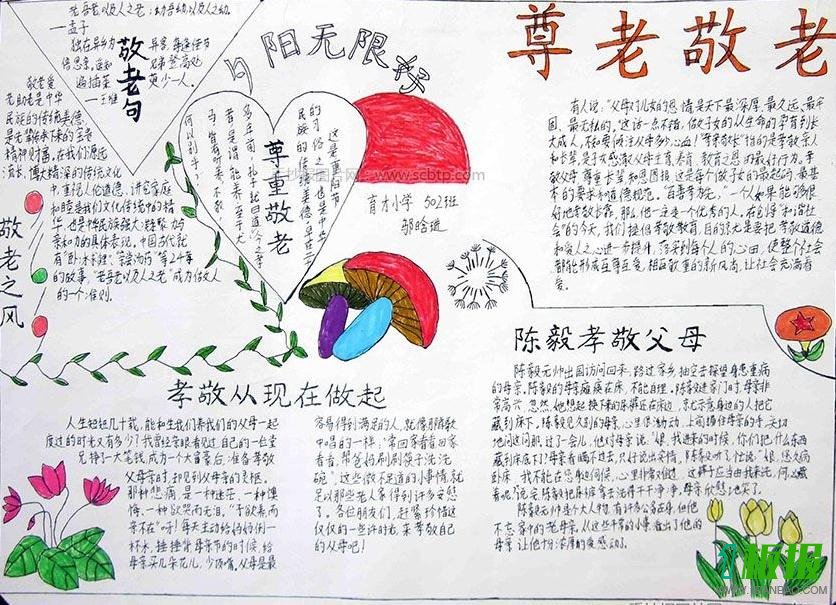 老吾老以及人之老;幼吾幼以及人之幼。
——孟子
独在异乡为异客,每逢佳节
倍思亲。遥知兄弟登高处,
遍插茱萸少一人。
——王维
敬老句
夕阳无限好
尊老敬老
敬老爱
老助老是中华
民族的传统美德,
是先辈传承下来的宝贵
精神财富。在我们源远
流长,博大精深的传统文化
中,重视人伦道德、讲究家庭
和睦是我们文化传统中的精
华,也是中华民族强大凝聚力与
亲和力的具体表现。中国古代就
有"卧冰求鲤"、
等24年
的故事,"老吾老以及人之老"成为做人
的一个准则。
敬老之风
尊重敬老
这是重阳节
的习俗之
民族的传统美德,早在二千
多年前,孔子就曰道:"今之孝
者,是谓能养。至于犬
马,皆能有养;不敬,
何以别乎?"
www.scbtp.com
育才小学 502班
有人说:"父母对儿女的恩情是天下最深厚、最久远、最牢
固、最无私的。"这话一点不错,做子女的从生命的孕育到长
大成人,不知要倾注父母多少心血!"孝亲敬长"指的是孝敬亲人
和长辈,是子女感激父母生育、养育、教育之恩的最好行为。孝
敬父母、尊重长辈和恩图报,这是每个做子女的最起码、最基
本的要求和道德规范。"百善孝为先",一个人如果能够很
好地孝敬长辈,那么他一定是一个优秀的人。在创导"和谐社
会"的今天,我们提倡孝敬教育,目的就是要把孝敬道德
和爱人之心进一步提升,落实到每个人的心田,使整个社会
都能形成互尊互爱、相互敬重的新风尚,让社会充满着
爱。
陈毅孝敬父母
陈毅元帅出国访问回来,路过家乡,抽空去探望身患重病
的母亲。陈毅的母亲瘫痪在床,不能自理。陈毅进家门时,母亲非
常高兴,忽然,她想起换下来的尿裤还在床边,就示意身边的人把它
藏到床下。陈毅见久别的母亲,心里很激动,上前握住母亲的手,关切
地问这问那。过了一会儿,他对母亲说:"娘,我进来的时候,你们把什么东西
藏到床底下了?"母亲看瞒不过去,只好说出实情。陈毅听了忙说:"娘,您久病
卧床,我不能在您身边伺候,心里非常难过,这裤子应当由我来洗,何必藏
着呢?"说完,陈毅把尿裤拿去洗得干干净净,母亲欣慰地笑了。
陈毅元帅是个大人物,有许多公务在身,但他
不忘家中的老母亲,从这些平常的小事看出了他的
母亲让他十分浓厚的爱感动了。
孝敬从现在做起
人生短短几十载,能和生我们养我们的父母一起
度过的时光又有多少?我曾经亲眼看见过自己的一位堂
兄挣了一大笔钱,成为一个大富豪后,准备孝敬
父母亲时,却见到父母亲的灵柩。
那种悲痛,是一种迷茫、一种懊
悔、一种欲哭而无泪。"子欲养而
亲不在"呀!每天主动给妈妈倒一
杯水,捶捶背,母亲节的时候,给
母亲买几朵花儿,少顶嘴,父母是最
容易得到满足的人,就像那首歌
中唱的一样:"常回家看看,回家
看看,帮爸妈刷刷筷子洗洗
碗"。这些微不足道的小事情,就
足以那些老人家得到许多安慰
了。各位朋友们,赶紧珍惜这
仅仅的一些许时光,来孝敬自己
的父母吧!
板报
WWW.BANBAO.COM